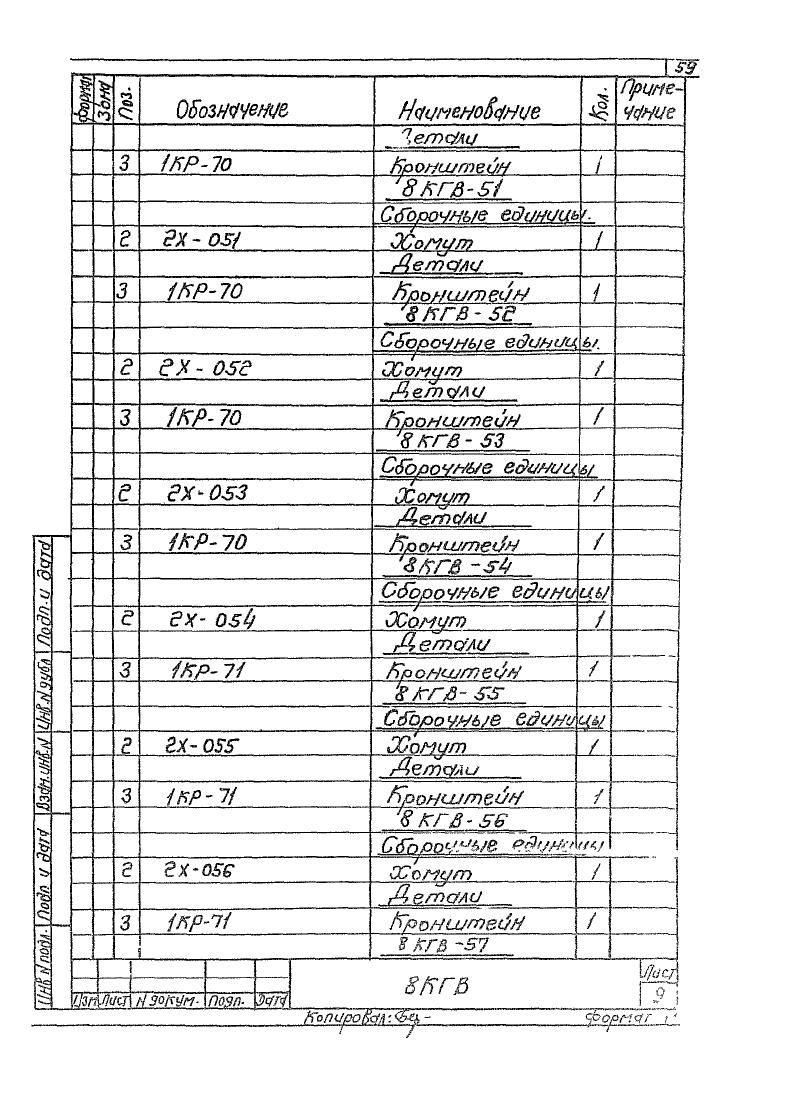 59
Формат Зона Поз. Обозначение Наименование Кол. Приме-
чание
Детали
3 1КР-70 Кронштейн 1
8КГВ-51
Сборочные единицы.
2 2Х-051 Хомут 1
Детали
3 1КР-70 Кронштейн 1
8КГВ-52
Сборочные единицы.
2 2Х-052 Хомут 1
Детали
3 1КР-70 Кронштейн 1
8КГВ-53
Сборочные единицы
2 2Х-053 Хомут 1
Детали
3 1КР-70 Кронштейн 1
8КГВ-54
Сборочные единицы
2 2Х-054 Хомут 1
Детали
3 1КР-71 Кронштейн 1
8КГВ-55
Сборочные единицы
2 2Х-055 Хомут 1
Детали
3 1КР-71 Кронштейн 1
8КГВ-56
Сборочные единицы
2 2Х-056 Хомут 1
Детали
3 1КР-71 Кронштейн 1
8КГВ-57
Инв N подл. Подп. и дата Взам.инв.N Инв.N дубл Подп. и дата
8КГВ
Лист
9
Изм Лист N докум. Подп. Дата
Копировал: Формат